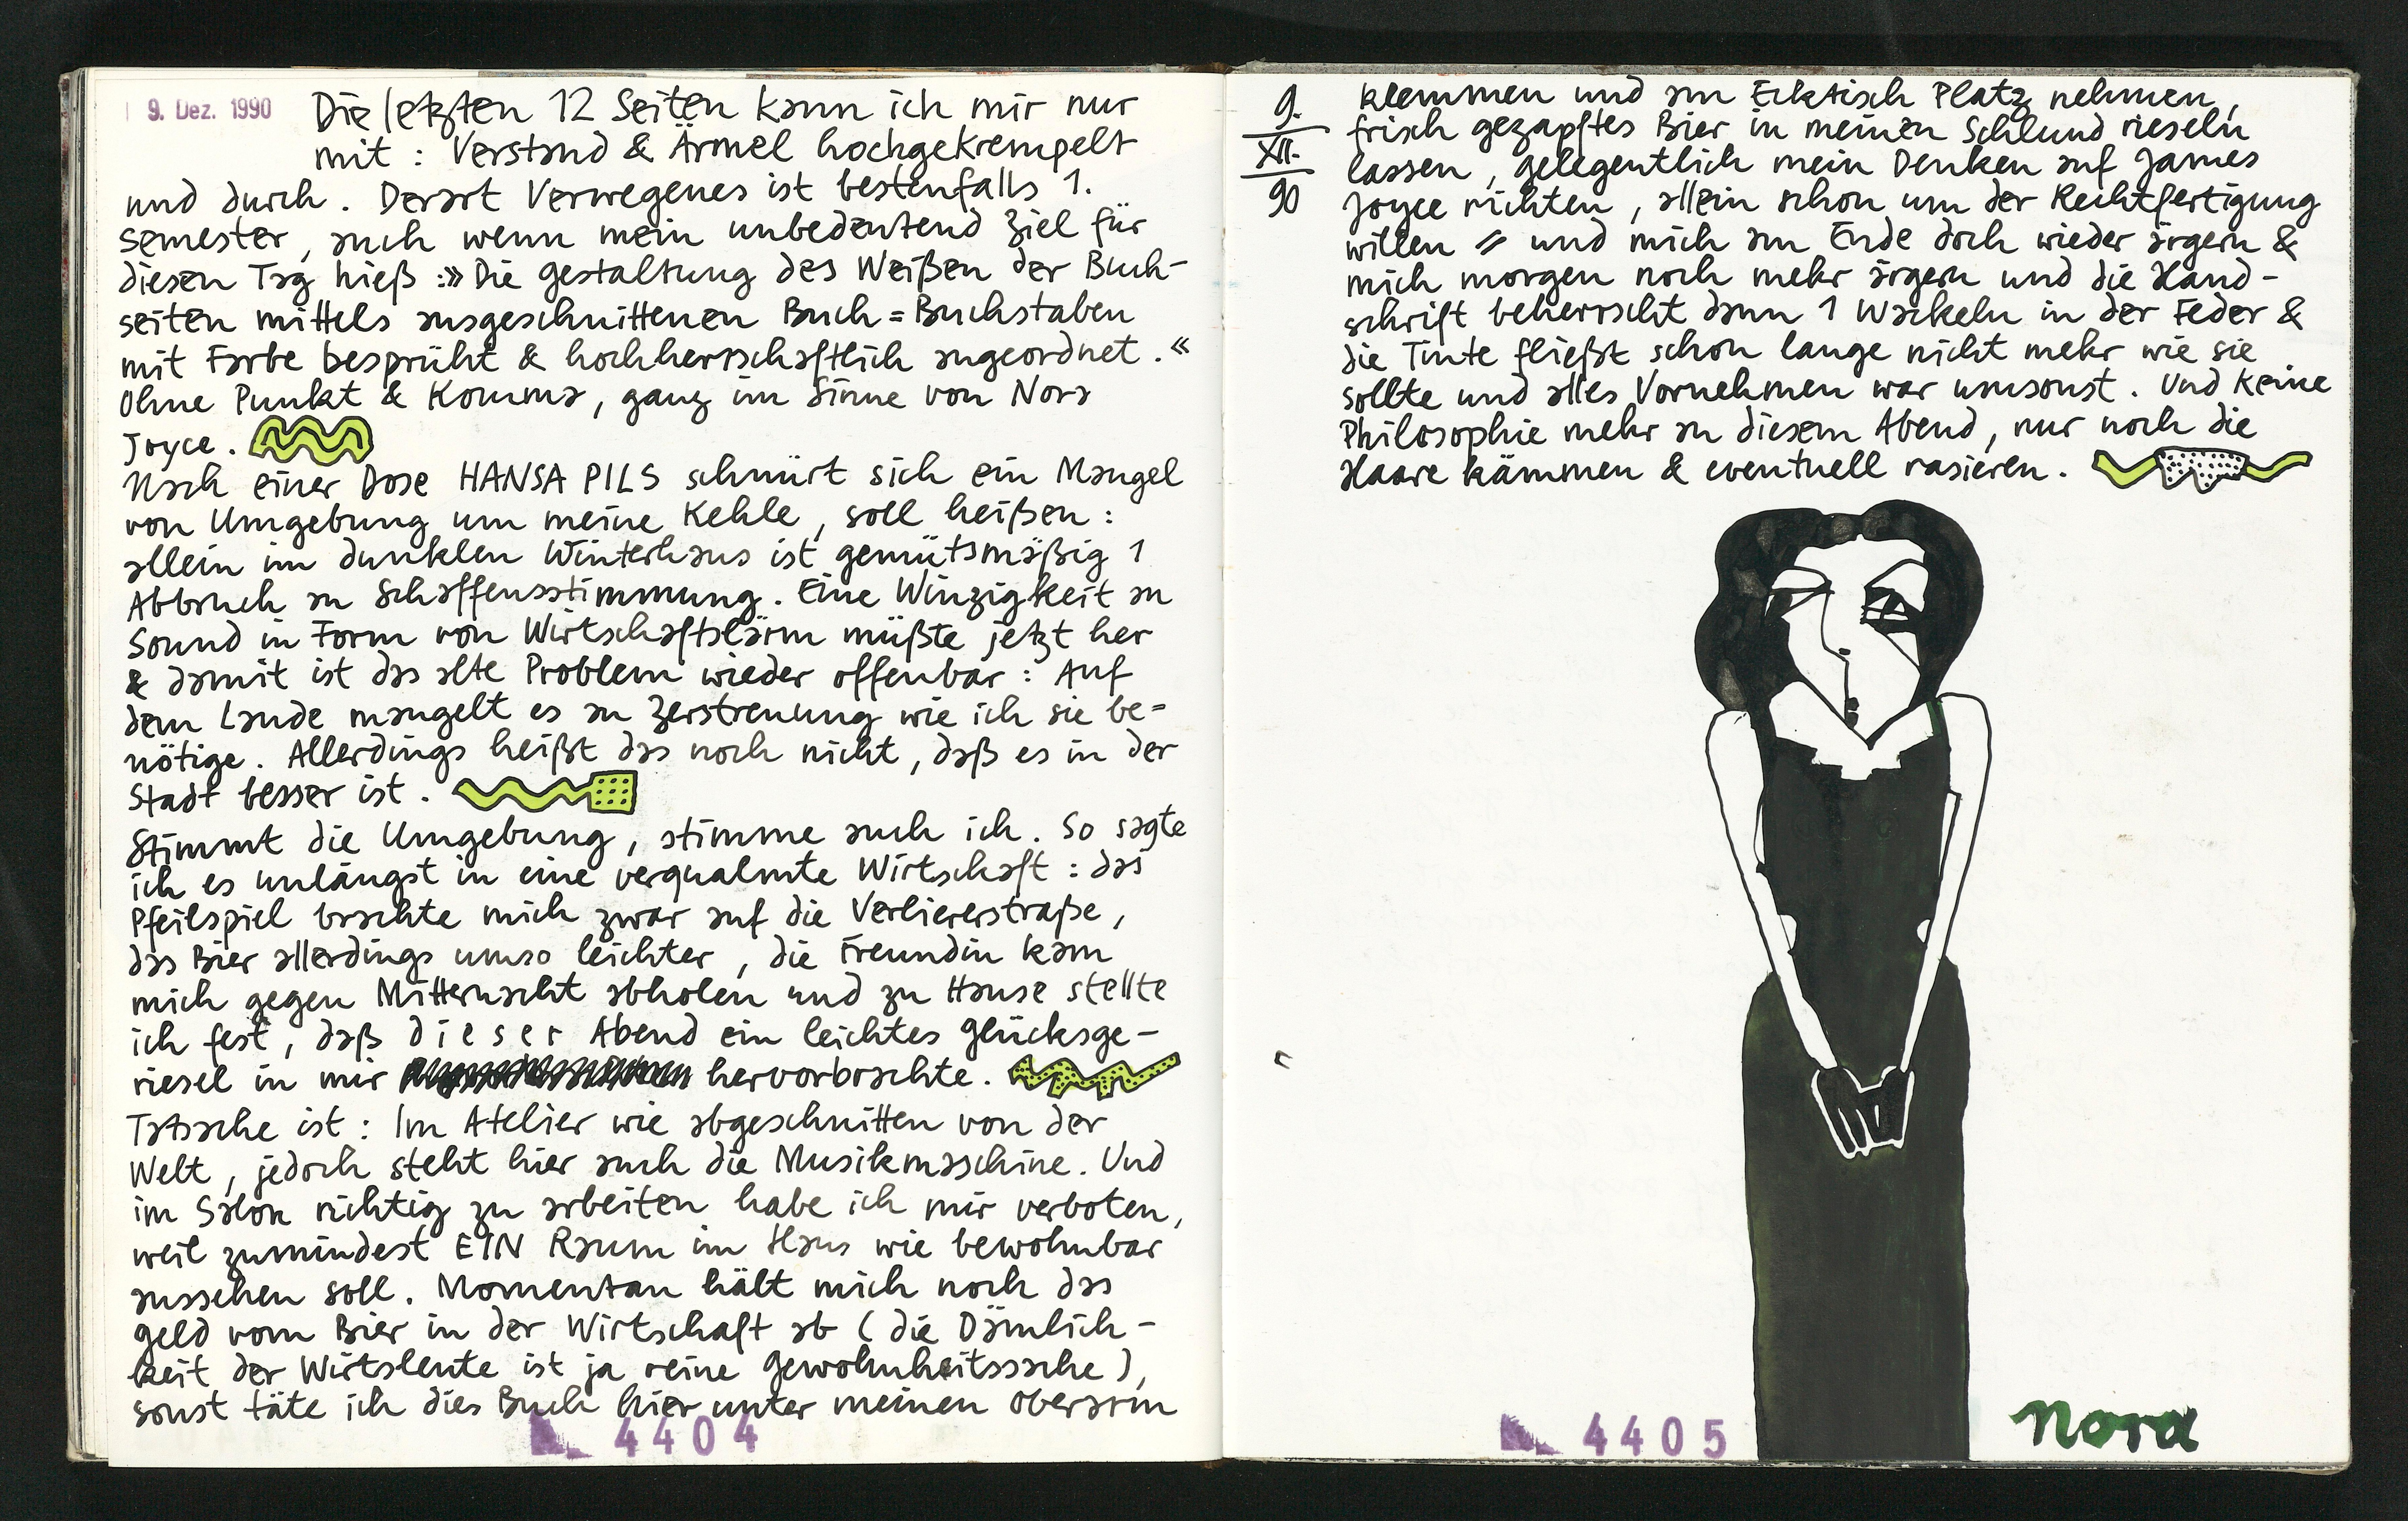 9. Dez. 1990
Die letzten 12 Seiten kann ich mir nur
mit : Verstand & Ärmel hochgekrempelt
und durch. Derart Verwegenes ist bestenfalls 1.
Semester, auch wenn mein unbedeutend Ziel für
diesen Tag hieß :» Die Gestaltung des Weißen der Buch-
seiten mittels ausgeschnittenen Buch=Buchstaben
mit Farbe besprüht & hochherrschaftlich angeordnet.«
Ohne Punkt & Komma, ganz im Sinne von Nora
Joyce.
Nach einer Dose HANSA PILS schnürt sich ein Mangel
von Umgebung um meine Kehle, soll heißen :
allein im dunklen Winterhaus ist gemütsmäßig 1
Abbruch an Schaffensstimmung. Eine Winzigkeit an
Sound in Form von Wirtschaftslärm müßte jetzt her
& damit ist das alte Problem wieder offenbar : Auf
dem Lande mangelt es an Zerstreuung wie ich sie be=
nötige. Allerdings heißt das noch nicht, daß es in der
Stadt besser ist.
Stimmt die Umgebung, stimme auch ich. So sagte
ich es unlängst in eine verqualmte Wirtschaft : das
Pfeilspiel brachte mich zwar auf die Verliererstraße,
das Bier allerdings umso leichter, die Freundin kam
mich gegen Mitternacht abholen und zu Hause stellte
ich fest, daß dieser Abend ein leichtes Glücksge-
riesel in mir hervorbrachte.
Tatsache ist : Im Atelier wie abgeschnitten von der
Welt, jedoch steht hier auch die Musikmaschine. Und
im Salon richtig zu arbeiten habe ich mir verboten,
weil zumindest EIN Raum im Haus wie bewohnbar
aussehen soll. Momentan hält mich noch das
Geld vom Bier in der Wirtschaft ab (die Dämlich-
keit der Wirtsleute ist ja reine Gewohnheitssache),
sonst täte ich dies Buch hier unter meinen Oberarm
4404
9.
XII.
90
klemmen und am Ecktisch Platz nehmen,
frisch gezapftes Bier in meinen Schlund rieseln
lassen, gelegentlich mein Denken auf James
Joyce richten, allein schon um der Rechtfertigung
willen = und mich am Ende doch wieder ärgern &
mich morgen noch mehr ärgern und die Hand-
schrift beherrscht dann 1 Wackeln in der Feder &
die Tinte fließt schon lange nicht mehr wie sie
sollte und alles Vornehmen war umsonst. Und keine
Philosophie mehr an diesem Abend, nur noch die
Haare kämmen & eventuell rasieren.
4405
nora